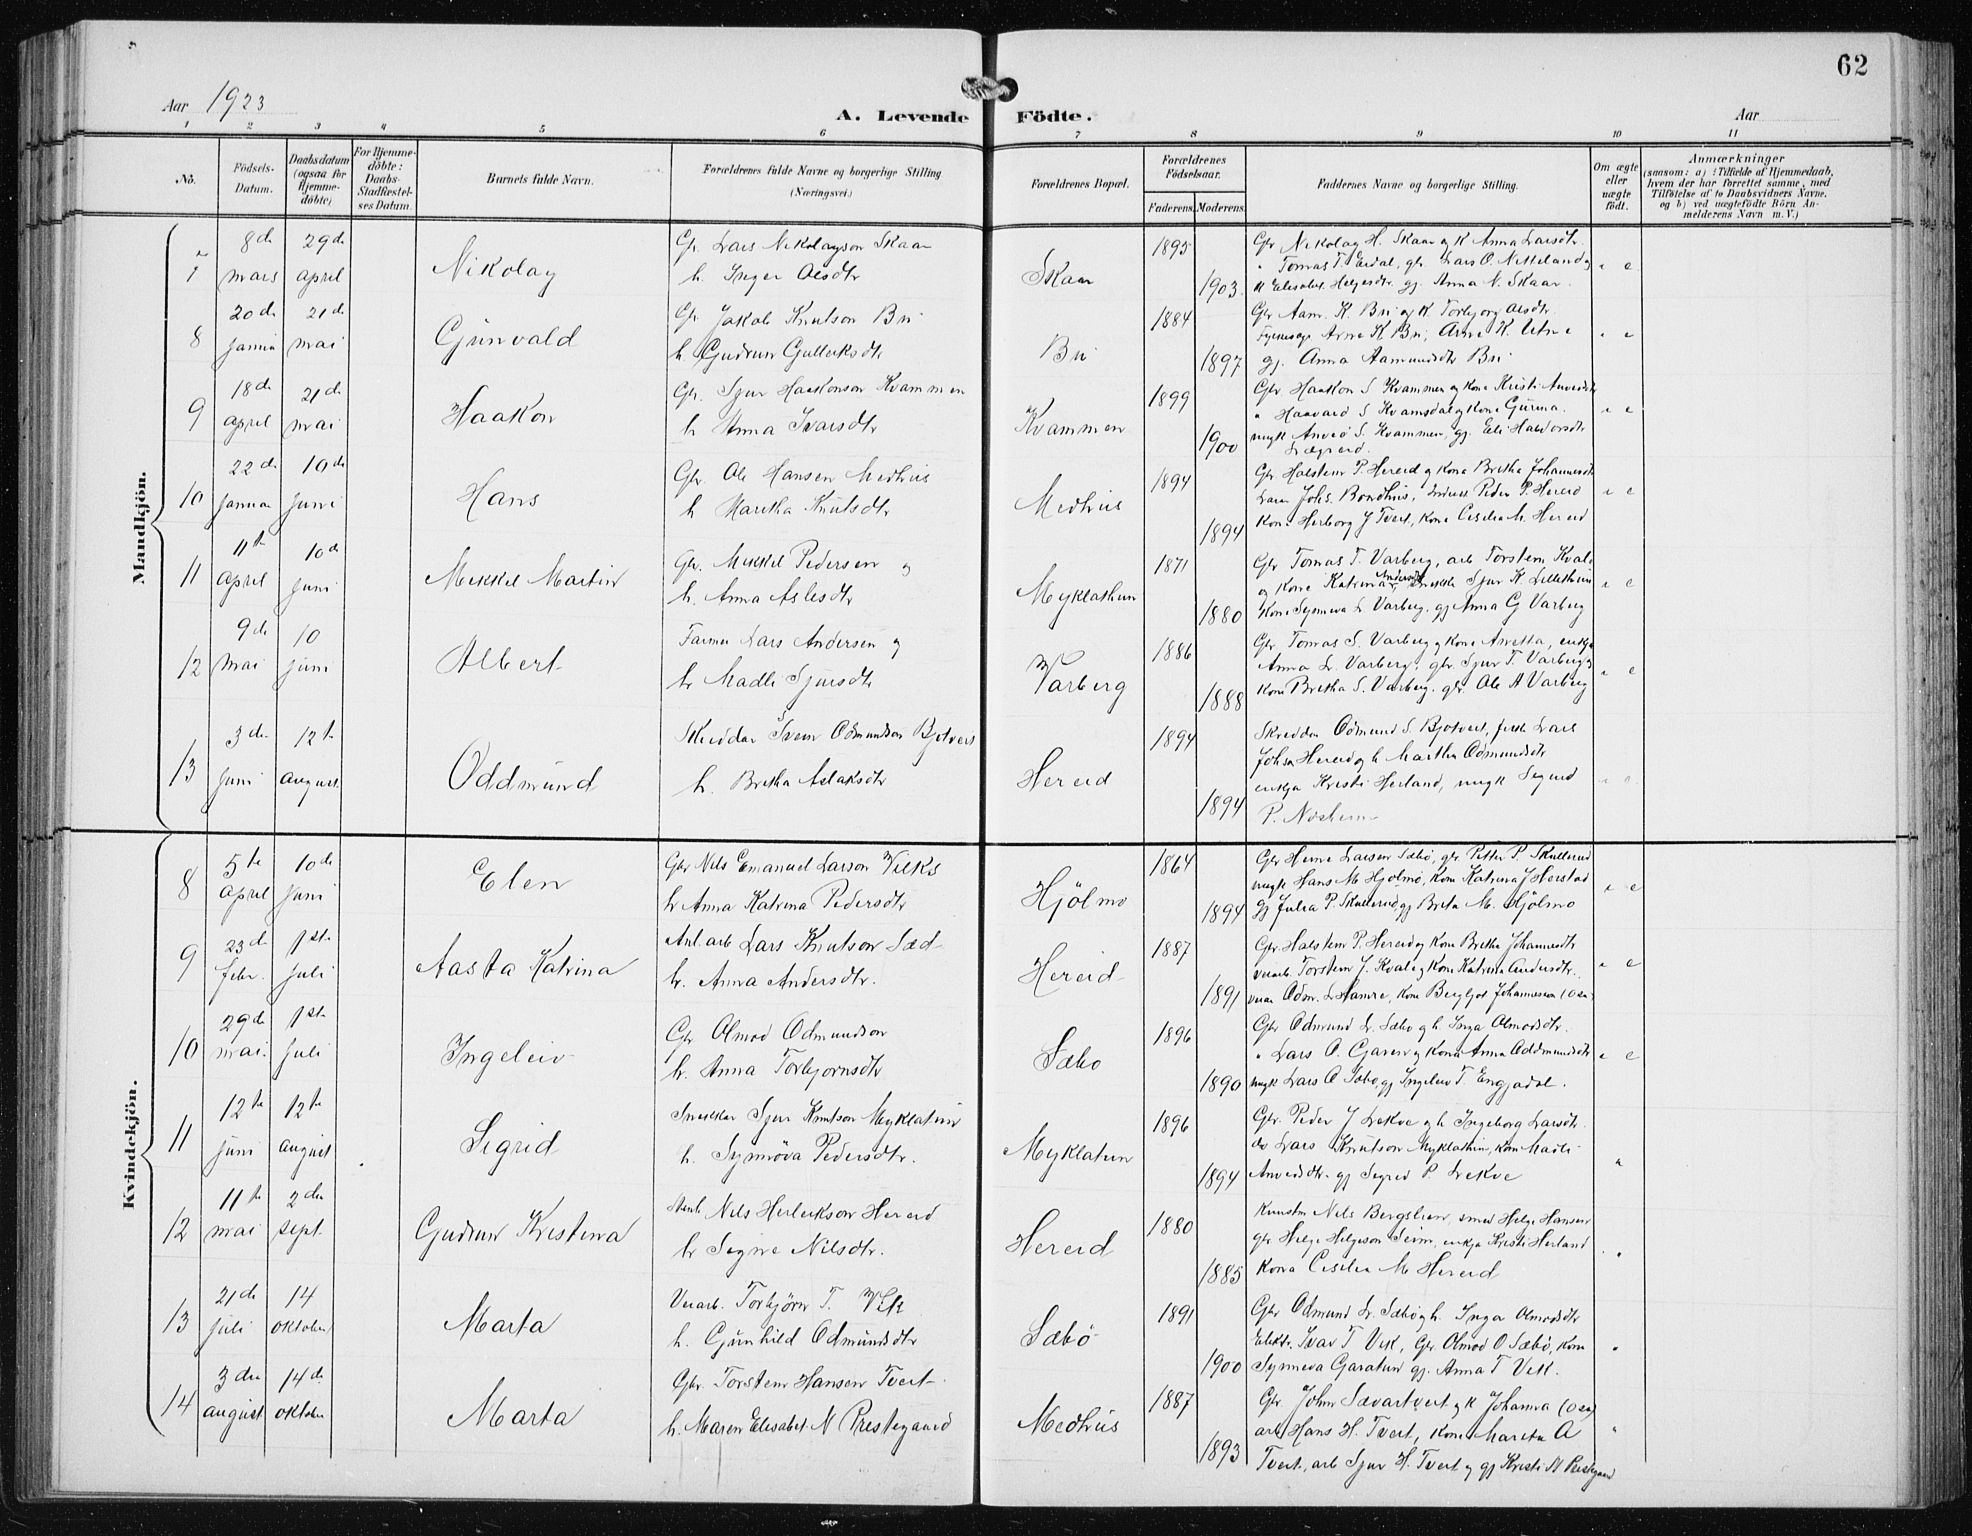 62
Aar 1923
A. Levende Födte.
Aar
1 2 3 4 5 6 7 8 9 10 11
No.
Födsels-Datum.
Daabsdatum (ogsaa for Hjemme-döbte)
For Hjemme-döbte: Daabs-Stadfæstel-ses Datum.
Barnets fulde Navn.
Forældrenes fulde Navne og borgerlige Stilling (Næringsvei.)
Forældrenes Bopæl.
Forældrenes Födselsaar.
Faderens. Moderens.
Faddernes Navne og borgerlige Stilling.
Om ægte eller uægte födt.
Anmærkninger
(saasom: a) i Tilfælde af Hjemmedaab, hvem der har forrettet samme, med Tilföielse af to Daabsvidners Navne. og b) ved uægtefödte Börn An-melderens Navn m.V.)
Mandkjön.
7 8de mars 29de april Nikolay
Gbr. Lars Nikolayson Skaar
h. Inger Olsdtr
Skaar 1895 1903
Gbr Nikolay H. Skaar og K Anna Larsdtr.
" Tomas T. Eidal, gbr. Lars O. Netteland og
K Elisabet Helgesdtr. gj. Anna N. Skaar.
" e
8 20de januar 21de mai Gunvald
Gbr. Jakob Knutson Bu
h. Gudrun Gulleiksdtr
Bu 1884 1897
Gbr Aam. K. Bu og K. Torbjorg Olsdtr.
Arne K Bu, Arne K. Utne
gj. Anna Aamundsdtr Bu
" e
9 18de april 21de mai Haakon
Gbr. Sjur Haakonson Kvammen
h Anna Ivarsdtr
Kvammen 1899 1900
Gbr Haakon S Kvammen og kona Kristi
" Haavard S Kvamsdal og kona Gurina.
ungk S. Kvammen, gj. Eli Haldorsdtr
Lægreid.
" e
10 22de januar 10de juni Hans
Gbr. Ole Hansen Medhus
h Maritha Knutsdtr
Medhus 1894 1894
Gbr Halstein P. Hereid og kona Britha Johannesdtr
Johs. Bondhus, Peder P. Hereid
Kona Herborg J Tveit, kona Cisilia M. Hereid
" e
11 11te april 10de juni Mikkel Martin
Gbr. Mikkel Pedersen og
h. Anna Aslesdtr
Myklathun 1871 1880
Gbr Tomas T. Varberg, arb Torstein Kvale
og kona Katrina Andersdtr, snekker Sjur K. Lillethun
Kona Synneva L Varberg. gj Anna G Varberg
" e
12 9de mai 10 juni Albert
Farmer Lars Andersen og
h Madli Sjursdtr
Varberg 1886 1888
Gbr Tomas S. Varberg og kona enkja
Anna L. Varberg, gbr Sjur T. Varberg og
kona Britha S. Varberg. gbr. Ole A Varberg
" e
13 3de juni 12te august Oddmund
Skreddar Svein Odmundson Bjotveit
h. Britha Aslaksdtr
Hereid 1894 1894
Skreddar Odmund S. Bjotveit, Lars
Johsn Hereid og h Martha Odmundsdtr
enkja Kristi Herland, ungk Sigurd
P. Nosheim
" e
Kvindekjön.
8 5te april 10de juni Elen
Gbr Nils Emanuel Larson Vilks
h. Anna Katrina Pedersdtr
Hjölmo 1864 1894
Gbr Heine Larsen Sæbö, gbr. Petter P. Skullerud
ungk Hans M Hjölmo, kona Katrina J Herstad
gj Julia P. Skullerud gj Brita M. Hjölmo
" e
9 23de febr. 1ste juli Aasta Katrina
Anl. arb Lars Knutson Sæd
h. Anna Andersdtr.
Hereid 1887 1891
Gbr Halstein P. Hereid og kona Britha Johannesdtr
verarb. Torstein J. Kvale og kona Katrina Andersdtr.
Odm. L Hamre, kona Bergljot Johannesen (Osa)
" e
10 29de mai 1ste juli Ingeleiv
Gbr Olmod Odmundson
h. Anna Torbjornsdtr
Sæbo 1896 1890
Gbr Odmund L. Sæbo og h. Inga Olmodsdtr.
" Lars O. Garen og kona Anna Oddmundsdtr
ungk Lars O Sæbo, gj Ingeleiv T. Engjadal.
" e
11 12te juni 12te august Sigrid
Snekkar Sjur Knutson Myklatun
h. Synnöva Pedersdtr.
Myklatun 1896 1894
Gbr. Peder J Lekve og h Ingeborg Larsdtr.
do Lars Knutson Myklathun, kona Madli
gj Sigrid P. Lekve
"
12 11te mai 2den sept. Gudrun Kristina
Nils Herleikson Hereid
h Signe Nilsdtr.
Hereid 1880 1885
Kunstm Nils Bergslien, smed Helge Hansen
gbr Helge Helgeson Seim, enkja Kristi Herland
Kona Cisilia M Hereid
"
13 21de juli 14 oktober Marta
Verarb. Torbjörn T. Vik
h. Gunhild Odmundsdtr
Sæbö 1891 1900
Gbr Odmund L. Sæbö og h. Inga Olmodsdtr
Elektr. Ivar T Vik, Gbr. Olmod O Sæbö, kona
Synneva Garatun gj. Anna T Vik.
"
14 3die august 14de oktober Marta
Gbr. Torstein Hansen Tveit
h. Maren Elisabet N Prestegaard
Medhus 1887 1893
Gbr. John Sævartveit og K Johanna (Osa)
arb Hans H. Tveit, kona Marita A
Tveit, arb Sjur H. Tveit og gj Kristi N Prestegaard
"